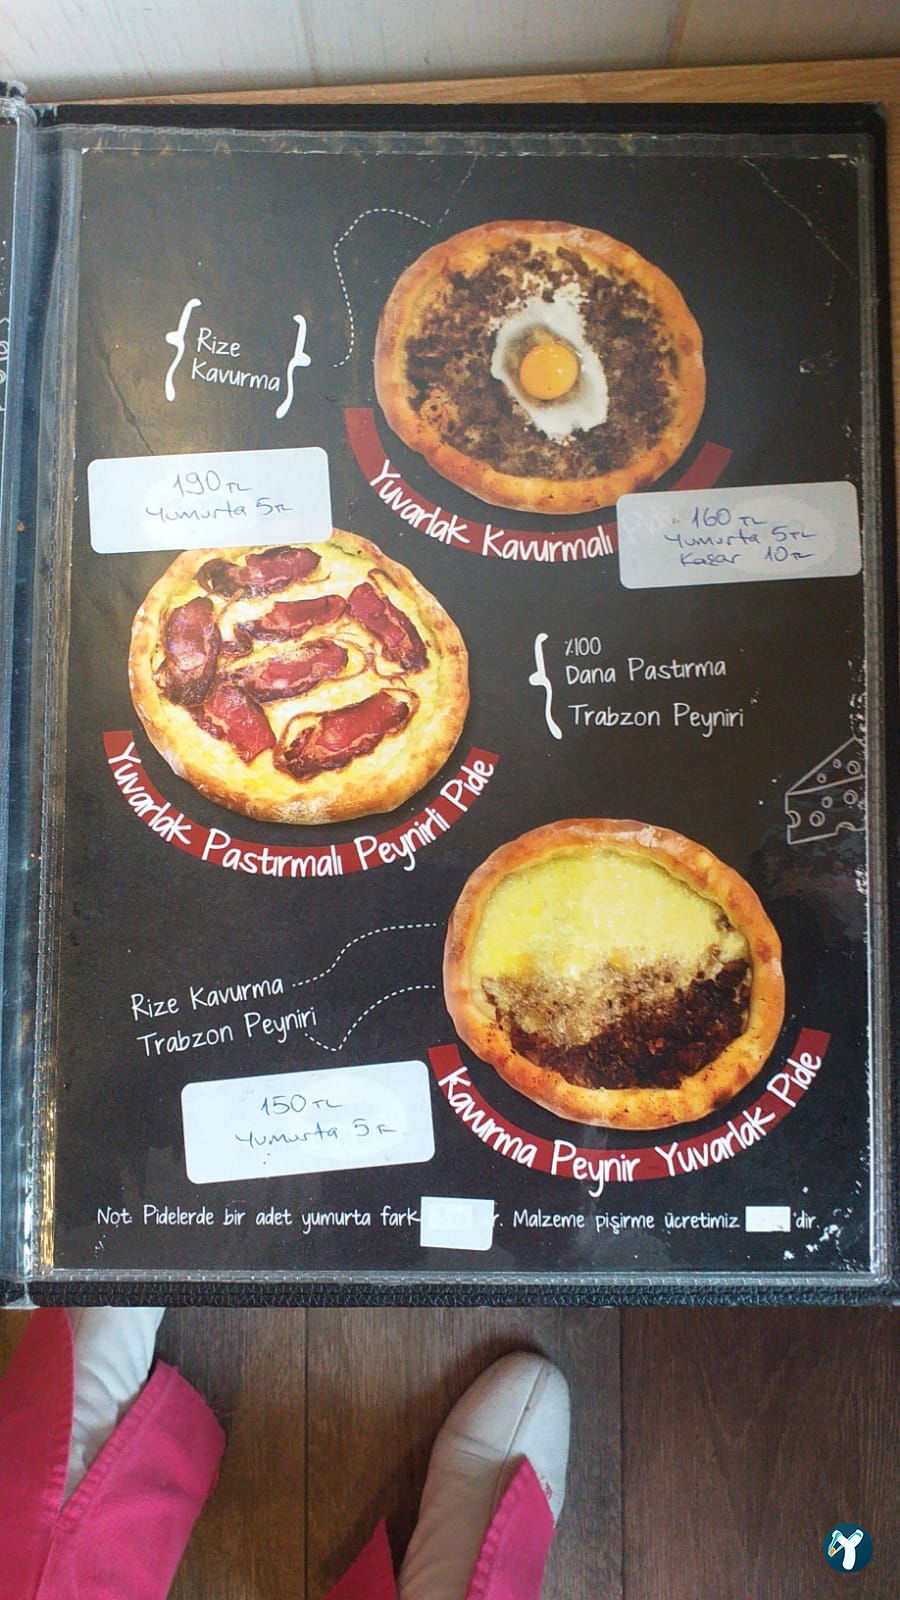 Rize
Kavurma
190 TL
Yumurta 5 TL
Yuvarlak Kavurmalı Pide
160 TL
Yumurta 5 TL
Kaşar 10 TL
%100
Dana Pastırma
Trabzon Peyniri
Yuvarlak Pastırmalı Peynirli Pide
Rize Kavurma
Trabzon Peyniri
150 TL
Yumurta 5 TL
Kavurma Peynir Yuvarlak Pide
Not: Pidelerde bir adet yumurta fark . Malzeme pişirme ücretimiz 'dir.